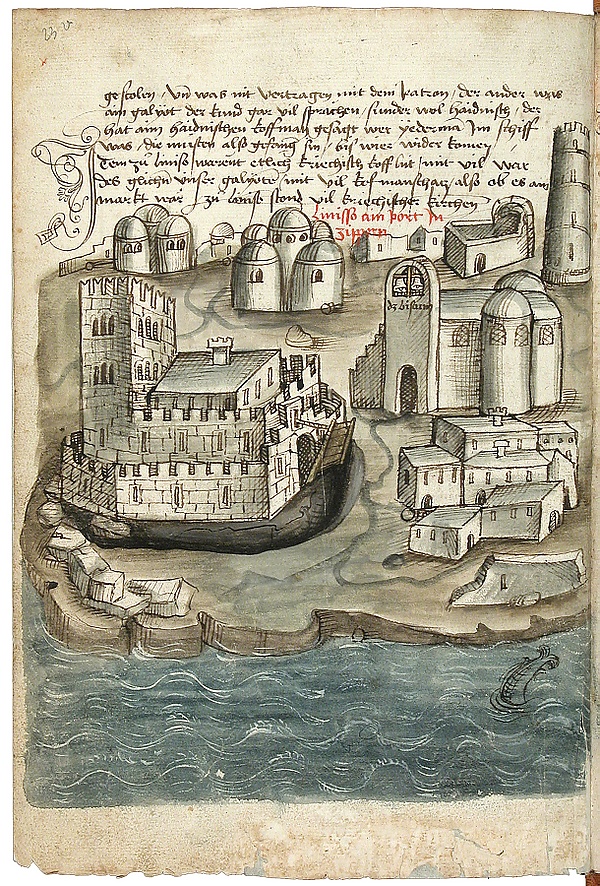 23 v
gestolen / Vn̄ was nit vertragen mit dem patron / der ander was
ain galyot der kund gar vil sprachen / sunder wol haidnisch / der
hat aim haidnischen koffman gesagt wer yederma Im schiff
was / die musten also gefang sin / bis wier wider komen /
Item zu limiso warent etlich kriechisch koff lüt / mit vil war
des glichn vnser galyote / mit vil kofmanschatz / also ob es ain
markt wär / zu limiso stond vil kriechischer kirchen
Limisso ain port In
Zippern
dz bistum